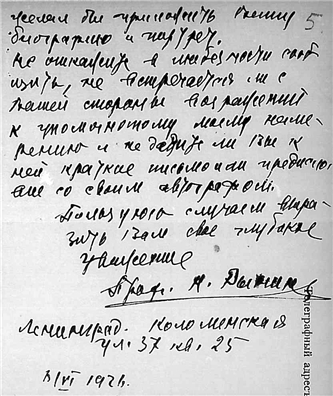 желал бы приложить Вашу 5
биографию и портрет.
Не откажите в любезности сооб
щить, не встречается ли с
Вашей стороны возражений
к упомянутому моему наме-
рению и не дадите ли Вы к
ней краткое письмо или предисло-
вие со своим автографом.
Пользуюсь случаем выра-
зить Вам свое глубокое
уважение
Проф. Н. Рынин
Ленинград. Коломенская
ул. 37 кв. 25
Телеграфный адрес